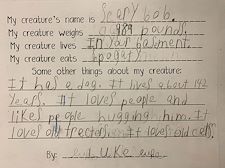 My creature's name is Scary bob.
My creature weighs pounds.
My creature lives In yor basment.
My creature eats spogaty
Some other things about my creature:
It has a dog. It lives about 142
years. It loves people and
likes people hugging him. It
loves old tractors. It loves old cars.
By: Luke